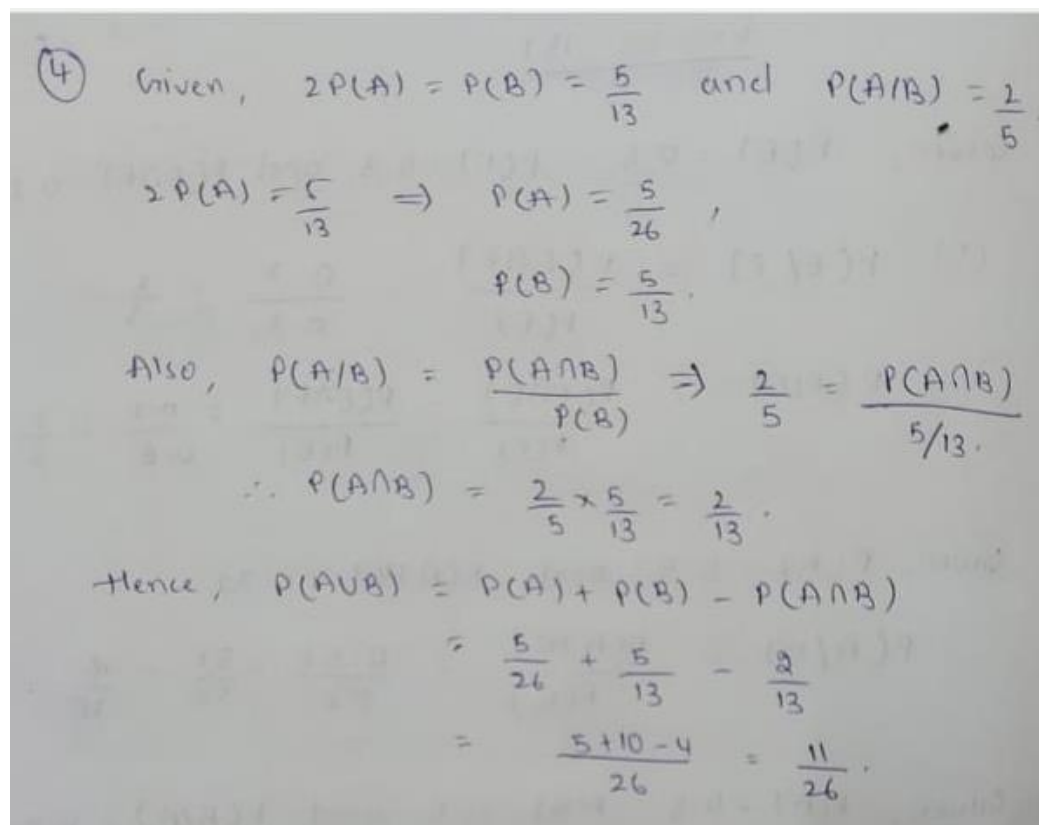 ④ Given, 2P(A) = P(B) = 5/13 and P(A/B) = 2/5
2P(A) = 5/13 ⇒ P(A) = 5/26 ,
P(B) = 5/13 .
Also, P(A/B) = P(A∩B)/P(B) ⇒ 2/5 = P(A∩B)/(5/13) .
∴ P(A∩B) = 2/5 × 5/13 = 2/13 .
Hence, P(A∪B) = P(A) + P(B) – P(A∩B)
= 5/26 + 5/13 – 2/13
= (5+10–4)/26 = 11/26 .